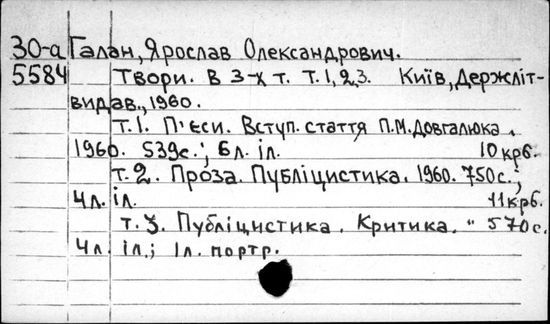 30-а Галан, Ярослав Олександрович.
5584 Твори. В 3-х т. Т.1,2,3. Київ, Держліт-
видав., 1960.
т.1. П'єси. Вступ. стаття П.М.Довгалюка.
1960. 539с.; 6л. іл. 10крб.
т.2. Проза. Публіцистика. 1960. 750с.;
4л. іл. 11крб.
т.3. Публіцистика. Критика. " 570с.
4л. іл.; 1л. портр.